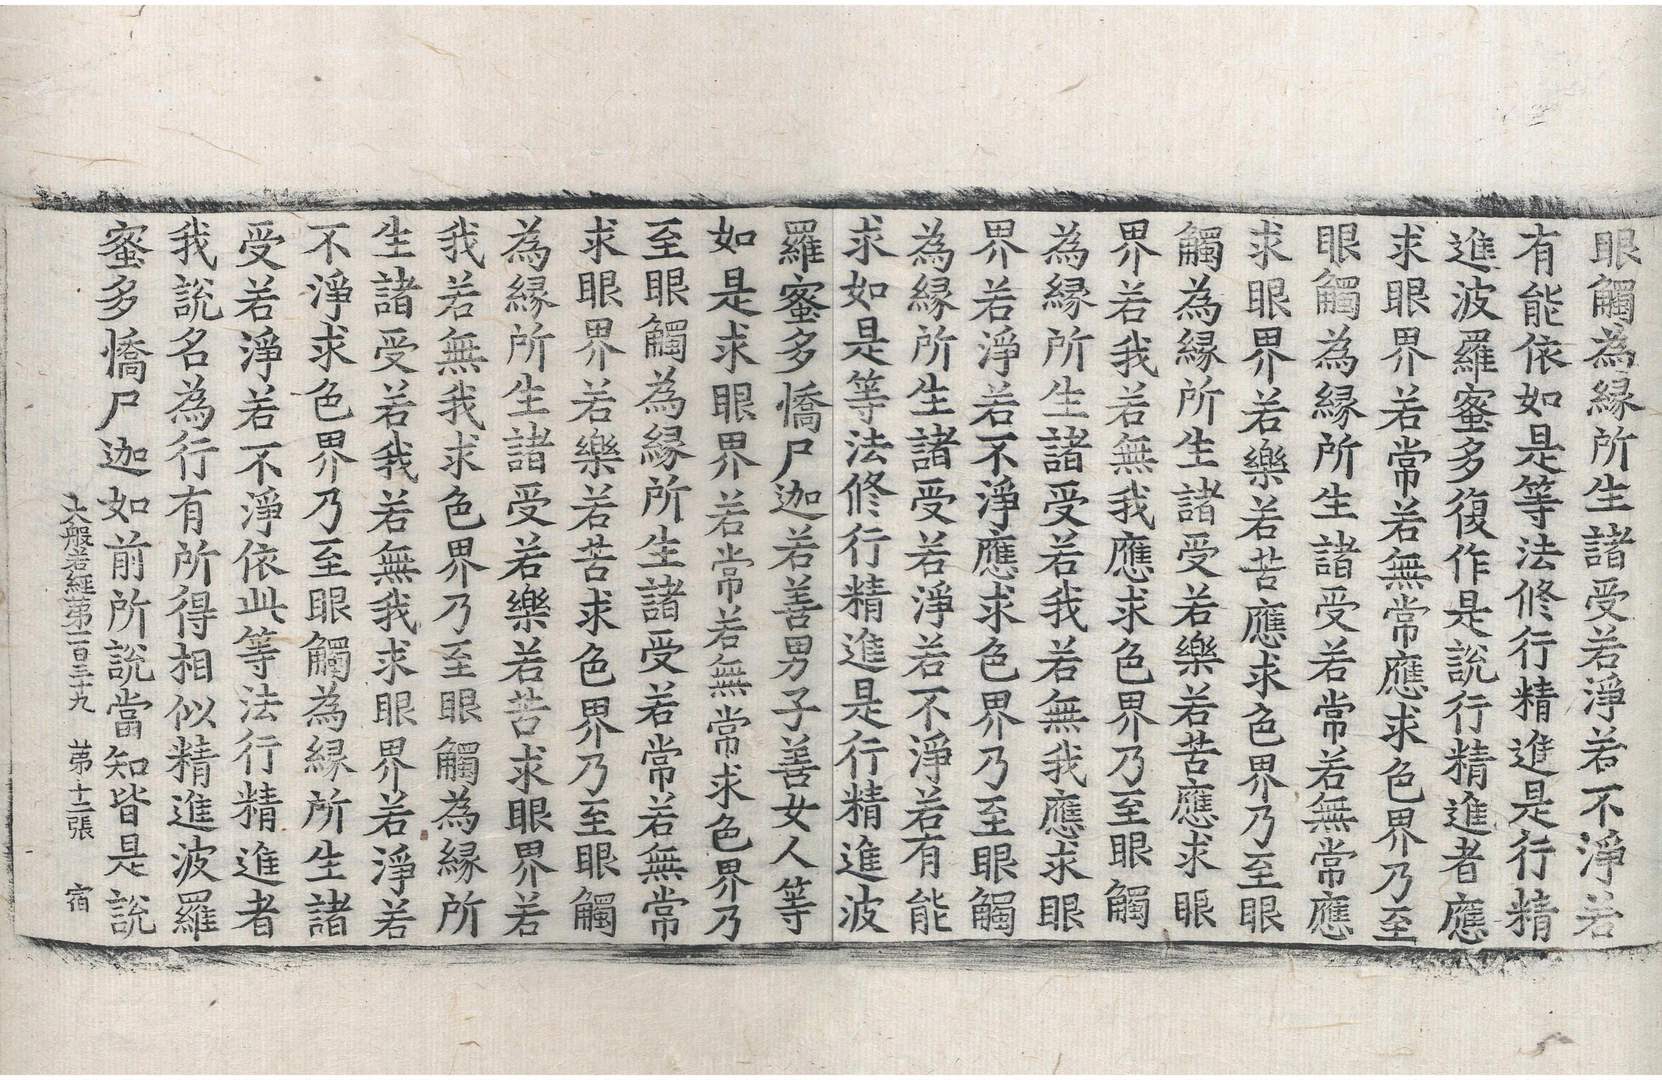 眼觸為緣所生諸受若淨若不淨若
有能依如是等法修行精進是行精
進波羅蜜多復作是說行精進者應
求眼界若常若無常應求色界乃至
眼觸為緣所生諸受若常若無常應
求眼界若樂若苦應求色界乃至眼
觸為緣所生諸受若樂若苦應求眼
界若我若無我應求色界乃至眼觸
為緣所生諸受若我若無我應求眼
界若淨若不淨應求色界乃至眼觸
為緣所生諸受若淨若不淨若有能
求如是等法修行精進是行精進波
羅蜜多憍尸迦若善男子善女人等
如是求眼界若常若無常求色界乃
至眼觸為緣所生諸受若常若無常
求眼界若樂若苦求色界乃至眼觸
為緣所生諸受若樂若苦求眼界若
我若無我求色界乃至眼觸為緣所
生諸受若我若無我求眼界若淨若
不淨求色界乃至眼觸為緣所生諸
受若淨若不淨依此等法行精進者
我說名為行有所得相似精進波羅
蜜多憍尸迦如前所說當知皆是說
大般若經第一百三十九 第十二張 宿